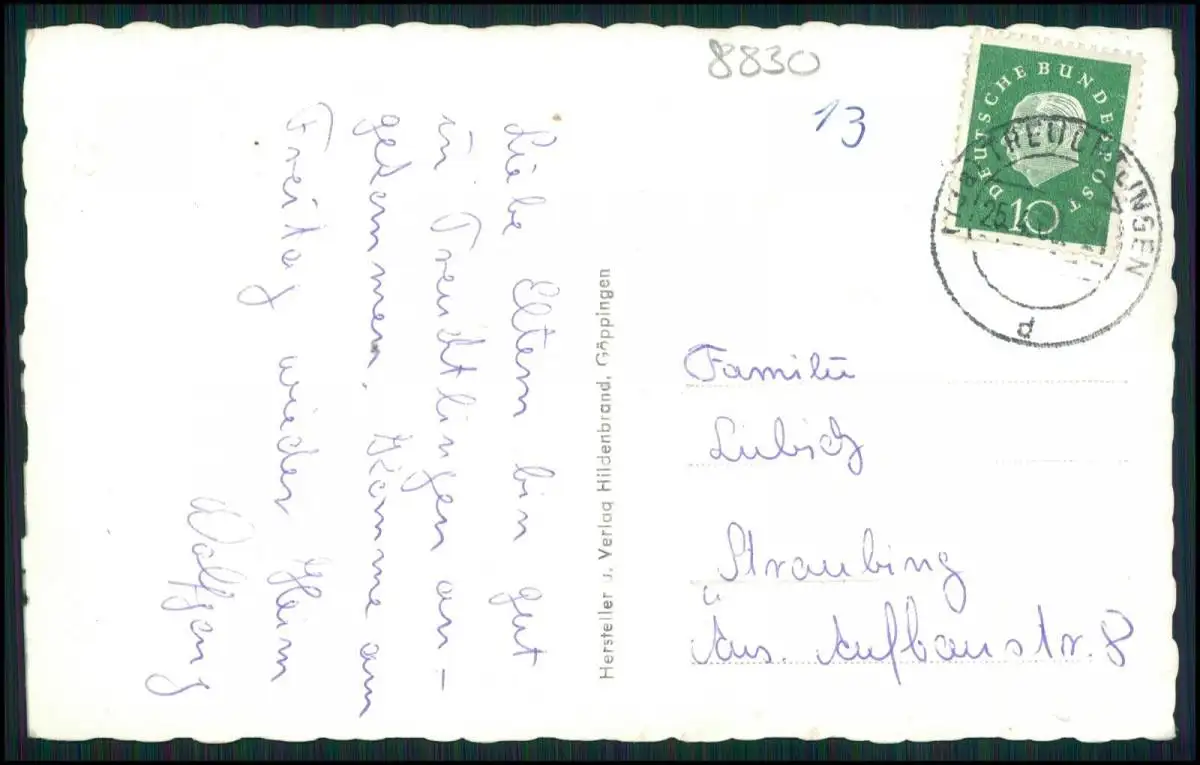 8830
13
DEUTSCHE BUNDESPOST
10
TREUCHTLINGEN
25
d
Liebe Eltern bin gut
in Treuchtlingen an-
gekommen. Komme am
Freitag wieder Heim
Wolfgang
Hersteller u. Verlag Hildenbrand, Göppingen
Familie
Straubing
Aufbaustr. 8